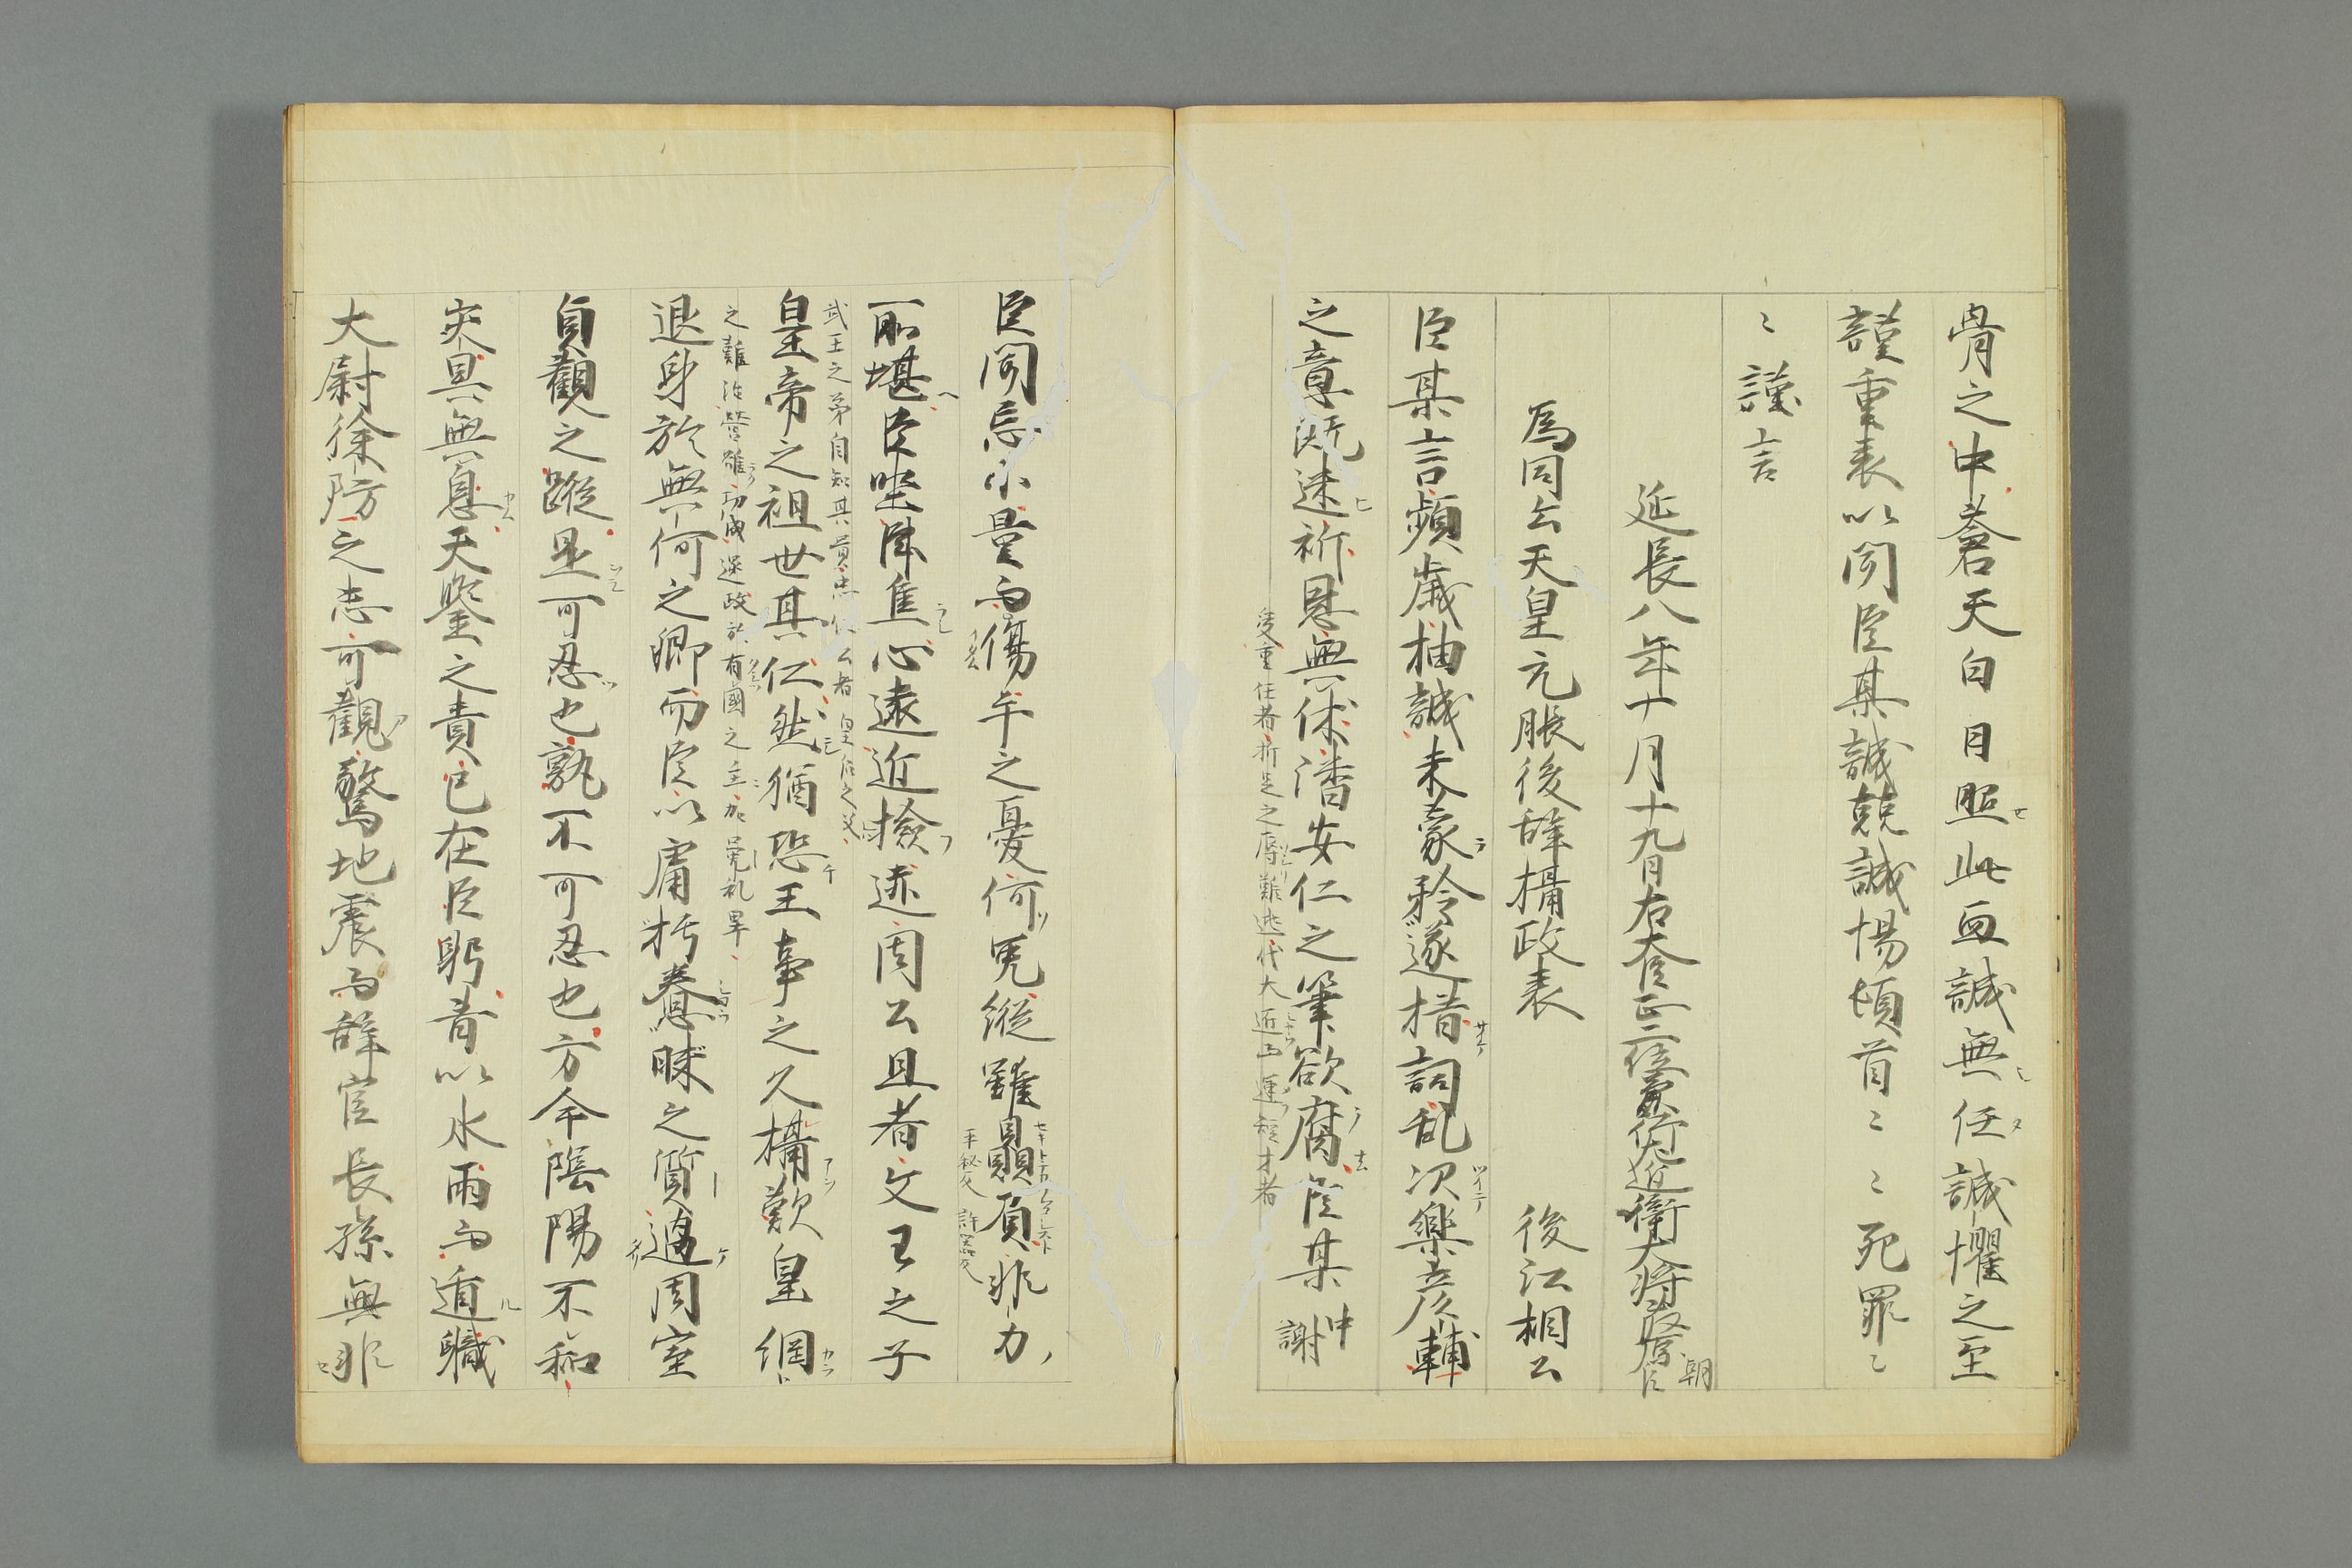 骨之中蒼天白日照此血誠無任誠懼之至
謹重表以聞臣某誠兢誠惕頓首〻〻死罪〻
〻謹言
延長八年十月十九日右大臣正二位兼行左近衛大将藤原朝臣
為同公天皇元服後辞摂政表　後江相公
臣某言頻歳抽誠未蒙矜遂措詞乱次楽彦輔
之章既迷祈恩無術潘安仁之筆欲腐臣某中謝
受重任者折足之辱難逃代大匠
臣聞忘小量而傷午之憂何免縦雖贔屓非力
所堪臣坐臥焦心遠近撿迹周公旦者文王之子
武王之弟自知其貴忠仁公者皇后之父
皇帝之祖世其仁然猶恐王事之久摂歎皇綱
之難治營雖功成還政於有國之主
退身於無何之郷而臣以庸朽惷昧之質過周室
貞觀之蹤是可忍也孰不可忍也方今陰陽不和
災異無息天鑒之責已在臣躬昔以水雨而遁職
大尉徐防之志可觀驚地震而辞官長孫無非